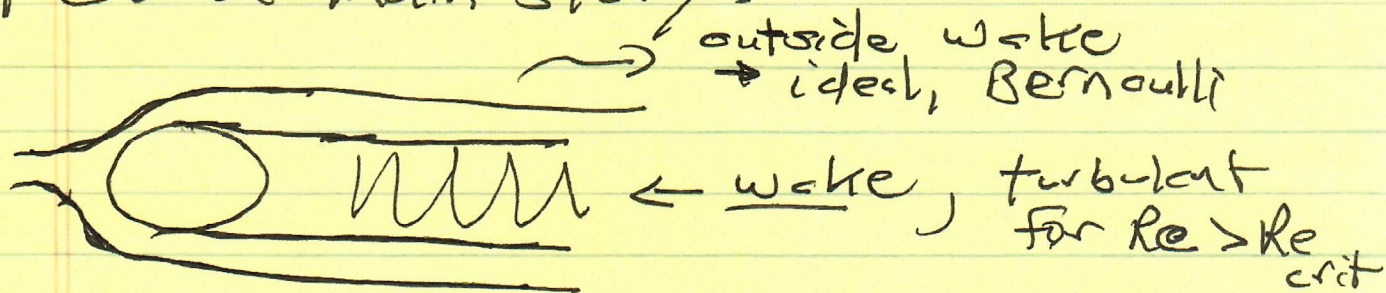 outside wake
→ ideal, Bernoulli
← wake, turbulent
for Re > Re crit